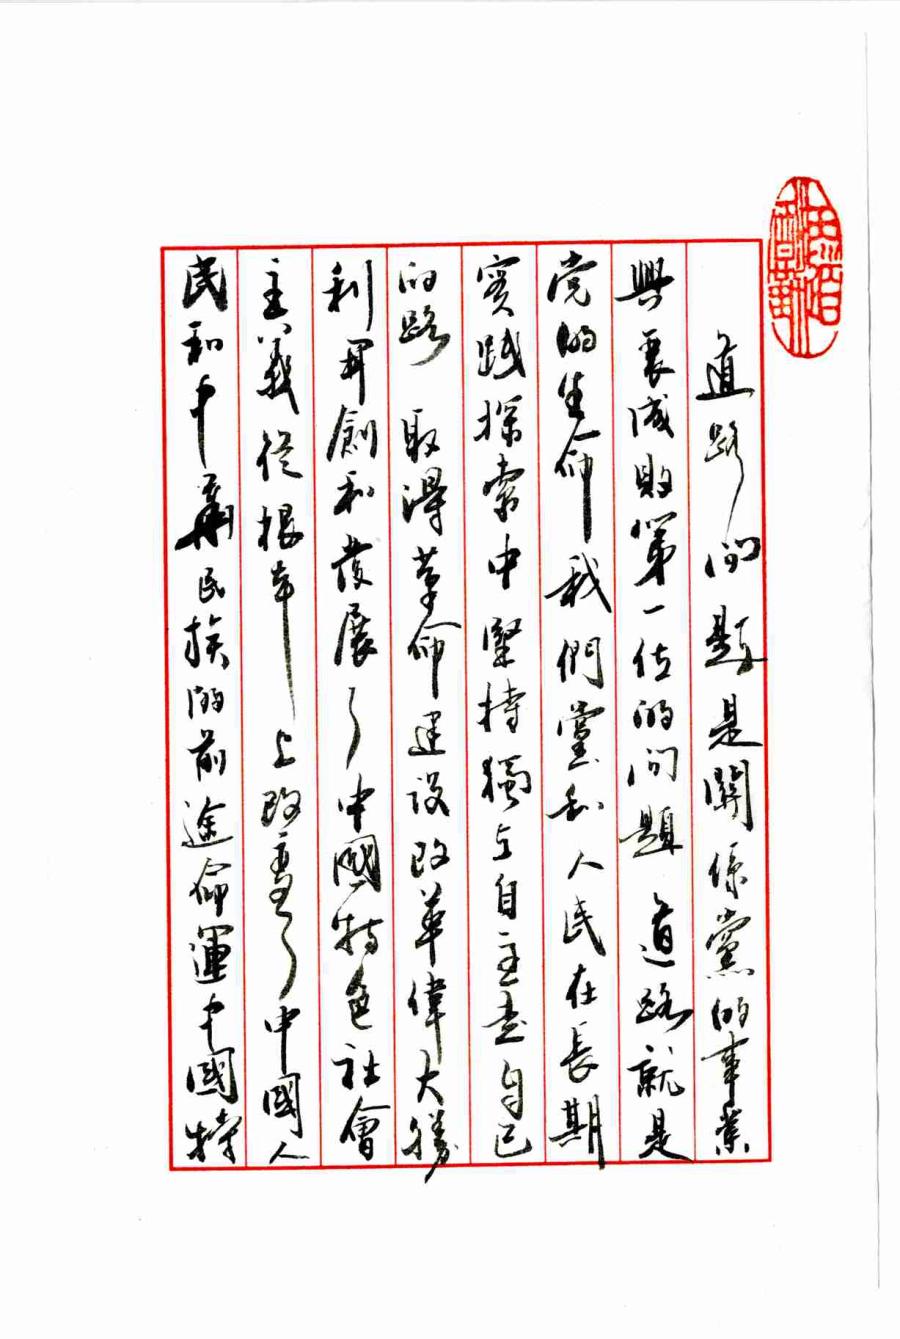 道路問題是關係黨的事業
興衰成敗第一位的問題 道路就是
党的生命 我們黨和人民在長期
实践探索中堅持獨立自主走自己
的路 取得革命建设改革偉大勝
利 開創和發展了中國特色社會
主義 從根本上改變了中國人
民和中華民族的前途命運 中國特